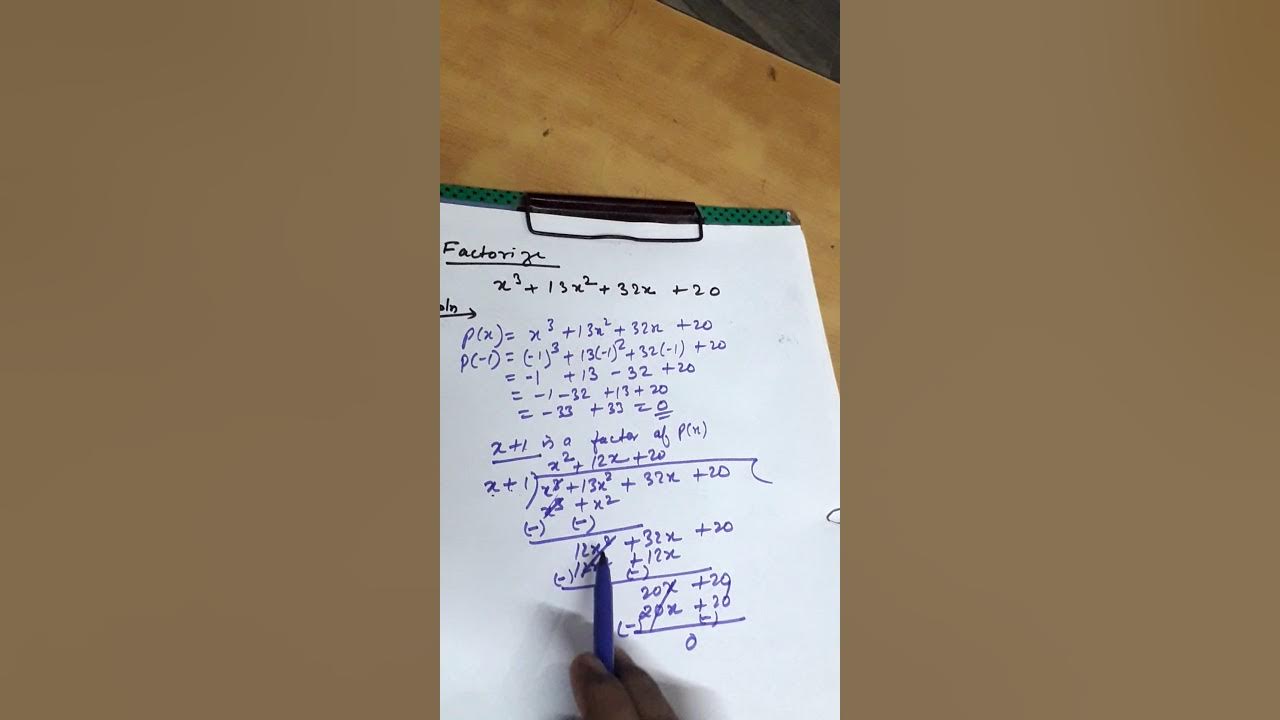 Factorize
x³ + 13x² + 32x + 20
oln →
P(x) = x³ + 13x² + 32x + 20
P(-1) = (-1)³ + 13(-1)² + 32(-1) + 20
= -1 + 13 - 32 + 20
= -1 - 32 + 13 + 20
= -33 + 33 = 0
x+1 is a factor of P(x)
x² + 12x + 20
x + 1 ) x³ + 13x² + 32x + 20
x³ + x²
(-) (-)
12x² + 32x + 20
+ 12x
(-) (-)
20x + 20
20x + 20
(-) (-)
0